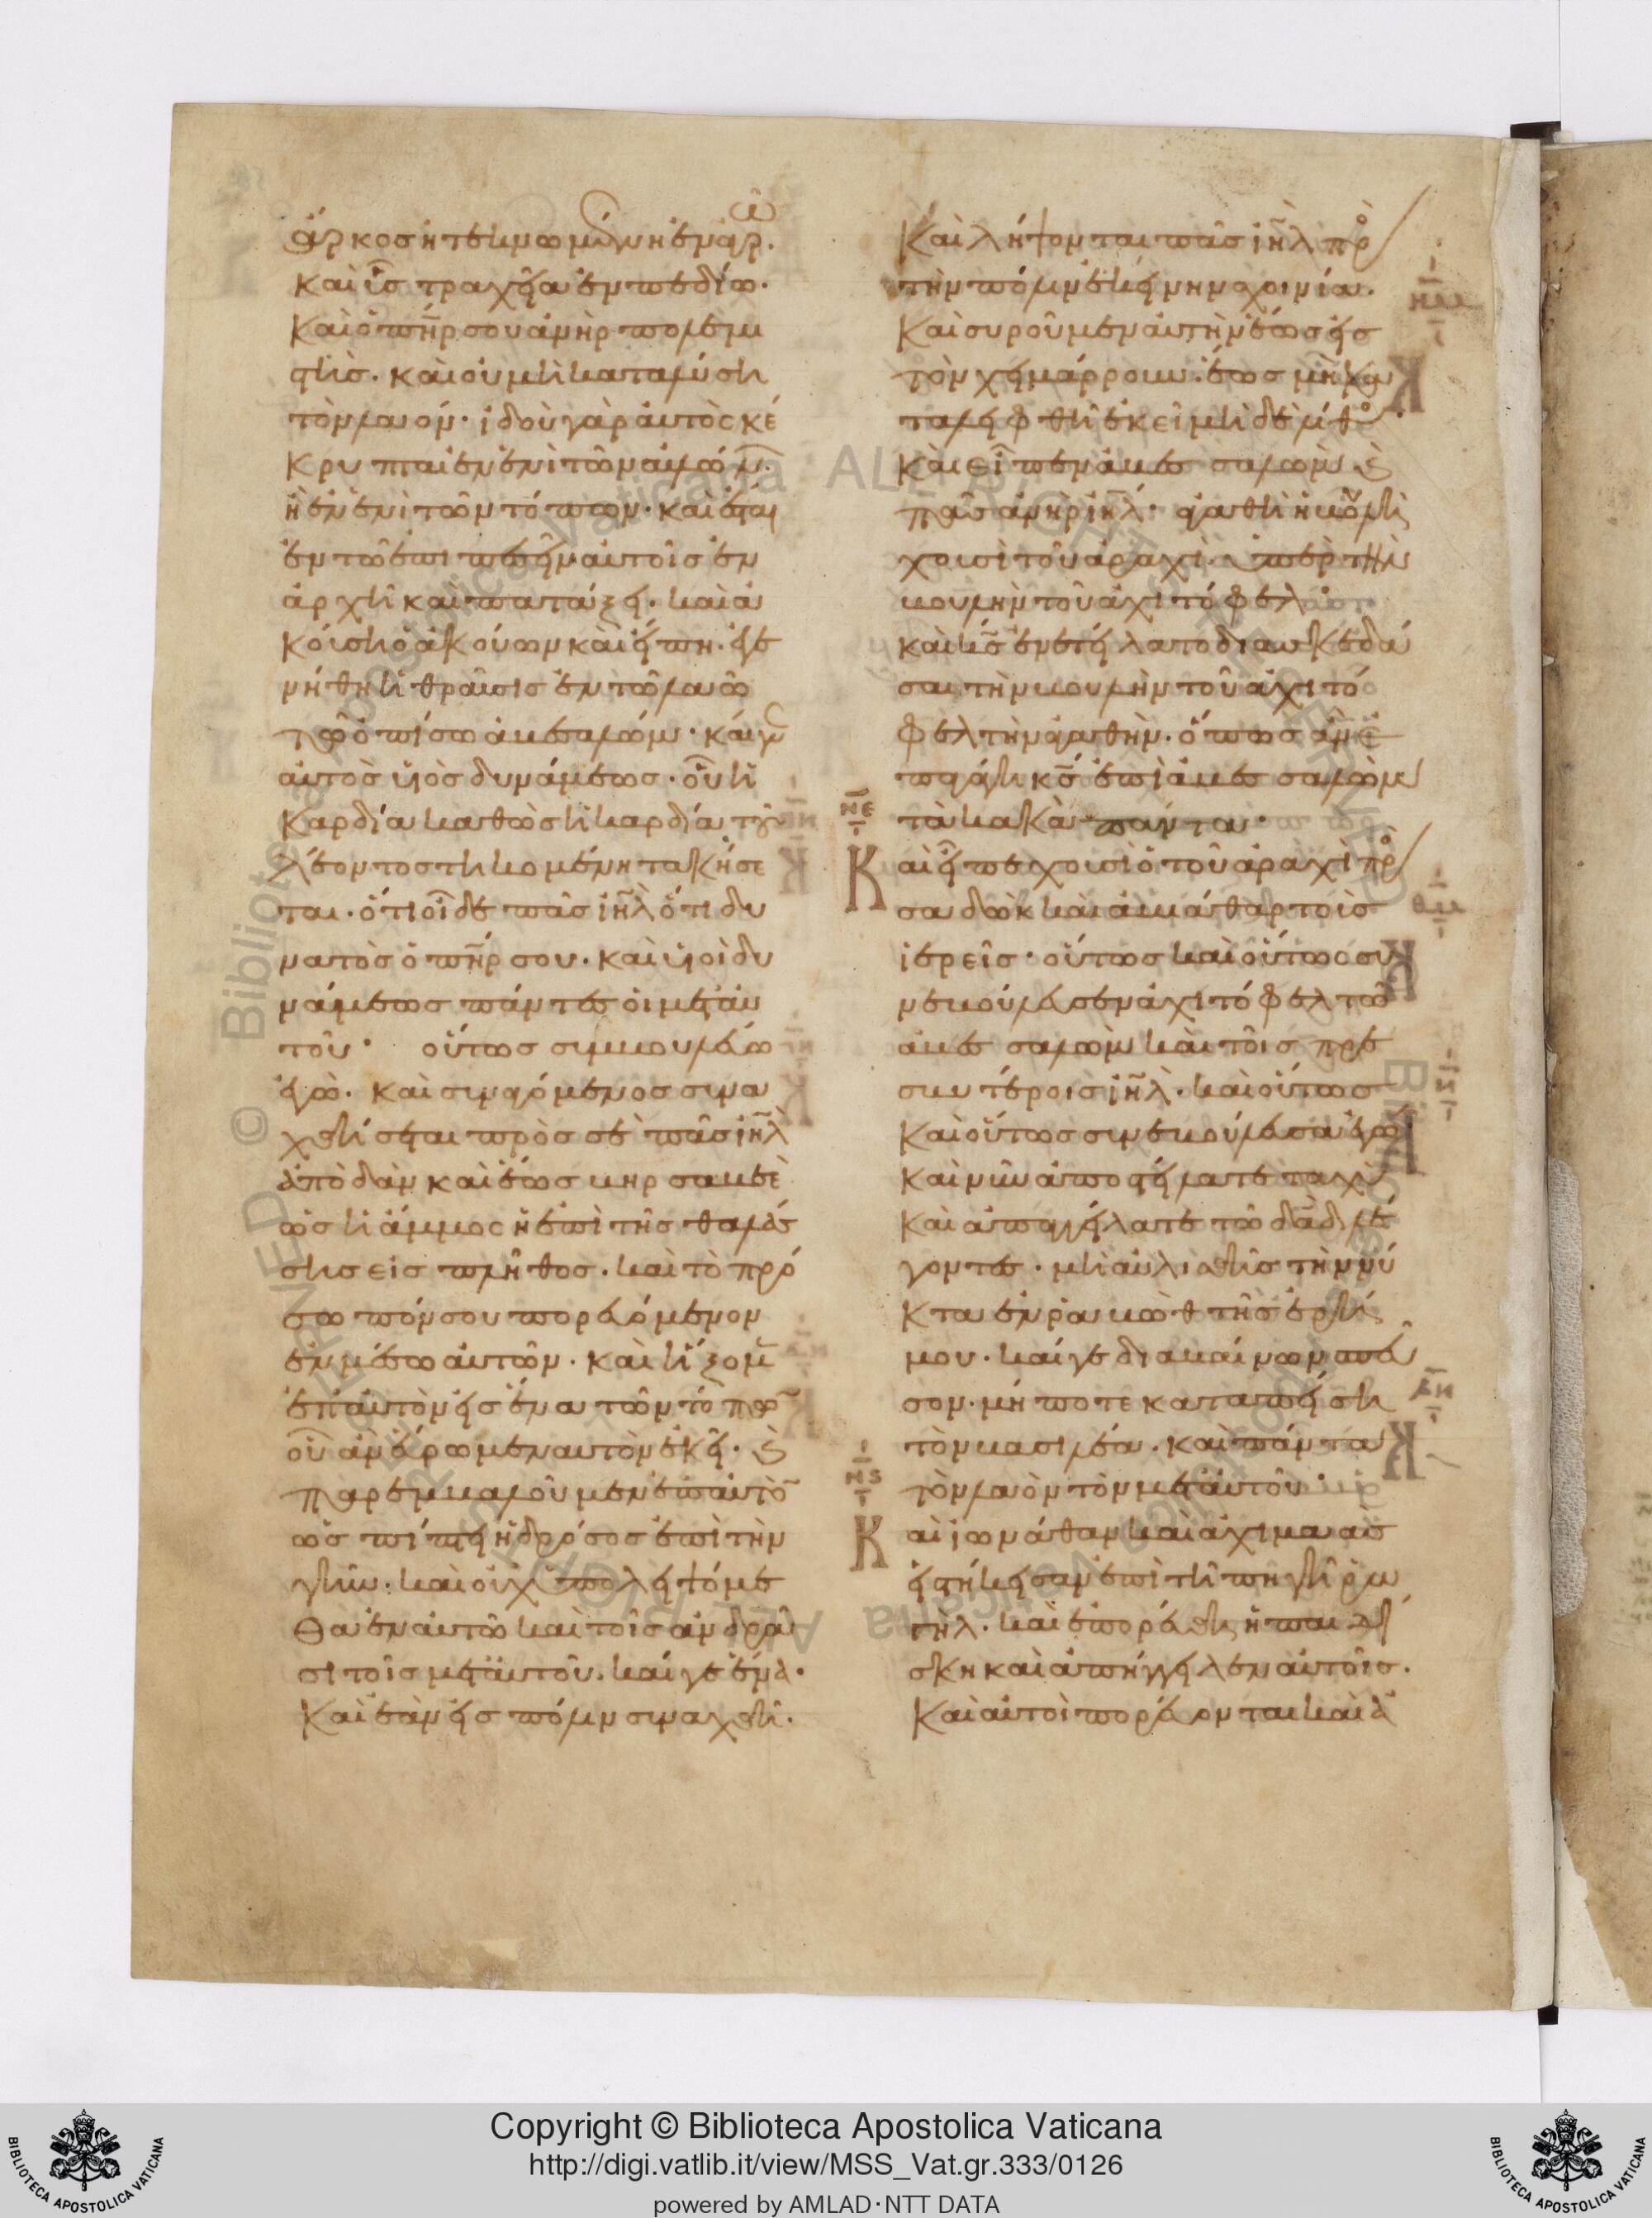 ἄρκος ἠτεκνωμένη ἐν ἀγρῶ.
καὶ ὗς τραχεῖα ἐν πεδίω.
Καὶ ὁ πη̅ρ σου ἀνὴρ πολεμι
στὴς. καὶ οὐ μὴ καταλύση
τὸν λαόν· ἰδοὺ γὰρ αὐτὸς κέ
κρυπται ἐν ἑνὶ τῶν αὐλώνων.
ἢ ἐν ἑνὶ τῶν τόπων. καὶ ἔσται
ἐν τῶ ἐπιπεσεῖν αὐτοῖς ἐν
ἀρχῆ καὶ πατάξει. καὶ ἀ
κούση ὁ ἀκούων καὶ εἴπη. ἐγε
νήθη ἡ θραῦσις ἐν τῶ λαῶ
τῶ ὀπίσω ἀβεσαλώμ. κάιγε
αὐτὸς ὑιὸς δυνάμεως. οὗ ἡ
καρδία καθὼς ἡ καρδία τοῦ
λέοντος τηκομένη τακήσε
ται. ὅτι οἶδε πᾶς ιη̅λ ὅτι δυ
νατὸς ὁ πη̅ρ σου. καὶ υἱοὶ δυ
νάμεως πάντες οἱ μετ αὐ
τοῦ· οὕτως συμβουλεύω
ἐγώ. καὶ συναγόμενος συνα
χθήσεται πρὸς σὲ πᾶς ιη̅λ
ἀπὸ δὰν καὶ ἕως βηρσαβεὲ
ὡς ἡ ἄμμος ἡ ἐπὶ τῆς θαλάσ
σης εἰς πλῆθος. καὶ τὸ πρό
σωπόν σου πορευόμενον
ἐν μέσω αὐτῶν. καὶ ἥξομεν
ἐπ αὐτὸν εἰς ἕνα τῶν τόπων
οὗ ἂν εὕρωμεν αὐτὸν ἐκεῖ. καὶ
παρεμβαλοῦμεν ἐπ αὐτὸν
ὡς πίπτει ἡ δρόσος ἐπὶ τὴν
γῆν. καὶ οὐχ ὑπολειψόμε
θα ἐν αὐτῶ καὶ τοῖς ἀνδρά
σι τοῖς μετ αὐτοῦ. κάιγε ἕνα.
Καὶ ἐὰν εἰς πόλιν συναχθῆ.
Καὶ λήψονται πᾶς ιη̅λ πρὸς
τὴν πόλιν ἐκείνην σχοινία.
Καὶ συροῦμεν αὐτὴν ἕως εἰς
τὸν χειμάρρουν. ἕως μὴ κα
ταλειφθῆ ἐκεῖ μηδὲ λίθος.
Καὶ εἶπεν ἀβεσαλὼμ καὶ
πᾶς ἀνὴρ ιη̅λ. ἀγαθὴ ἡ βουλὴ
χουσὶ τοῦ ἀραχὶ. ὑπὲρ τὴν
βουλὴν τοῦ ἀχιτόφελ.
καὶ κ̅ς ἐνετείλατο διασκεδά
σαι τὴν βουλὴν τοῦ ἀχιτό
φελ τὴν ἀγαθὴν. ὅπως ἂν ἐ
παγάγη κ̅ς ἐπὶ ἀβεσαλὼμ
τὰ κακὰ πάντα.
ν̅ε̅
Καὶ εἶπε χουσὶ ὁ τοῦ ἀραχὶ πρὸς
σαδὼκ καὶ ἀβιάθαρ τοῖς
ἱερεῖς. οὕτως καὶ οὕτως συ
νεβούλευσεν ἀχιτόφελ τῶ
ἀβεσαλὼμ καὶ τοῖς πρε
σβυτέροις ιη̅λ. καὶ οὕτως
καὶ οὕτως συνεβούλευσα ἐγώ
Καὶ νῦν ἀποστείλατε ταχὺ
καὶ ἀπαγγείλατε τῶ δα̅δ λέ
γοντες. μὴ αὐλισθῆς τὴν νύ
κτα ἐν ἀραβὼθ τῆς ἐρή
μου. κάιγε διαβαίνων σπεῦ
σον. μήποτε καταπείση
τὸν βασιλέα. καὶ πάντα
τὸν λαὸν τὸν μετ αὐτοῦ.
ν̅ς̅
Καὶ ἰωνάθαν καὶ ἀχιμαας
εἱστήκεισαν ἐπὶ τῆ πηγῆ ῥω
γήλ. καὶ ἐπορεύθη ἡ παιδί
σκη καὶ ἀπήγγειλεν αὐτοῖς.
Καὶ αὐτοὶ πορεύονται καὶ ἀ
Copyright © Biblioteca Apostolica Vaticana
http://digi.vatlib.it/view/MSS_Vat.gr.333/0126
powered by AMLAD·NTT DATA
BIBLIOTECA APOSTOLICA VATICANA
BIBLIOTECA APOSTOLICA VATICANA